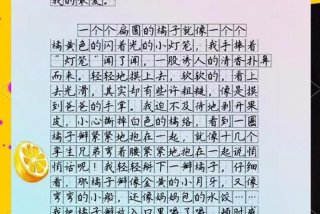 我的最爱。
一个个扁圆的橘子就像一个个
橘黄色的闪着光的小灯笼，我手捧着
“灯笼”闻了闻，一股诱人的清香扑鼻
而来，轻轻地摸上去，软软的，看上
去光滑，其实却有些许粗糙，像是摸
到爸爸的手掌。我迫不及待地剥开果
皮，小心撕掉白色的橘络，看到一圈
橘子瓣紧紧地抱在一起，就像十几个
孪生兄弟弯着腰紧紧地抱在一起说悄
悄话呢！我轻轻掰下一瓣橘子，仔细
看，那橘子瓣像金黄的小月牙，又像
弯弯的小船，还像妈妈包的水饺……
我把橘子瓣放入口里嚼了嚼，顿时感